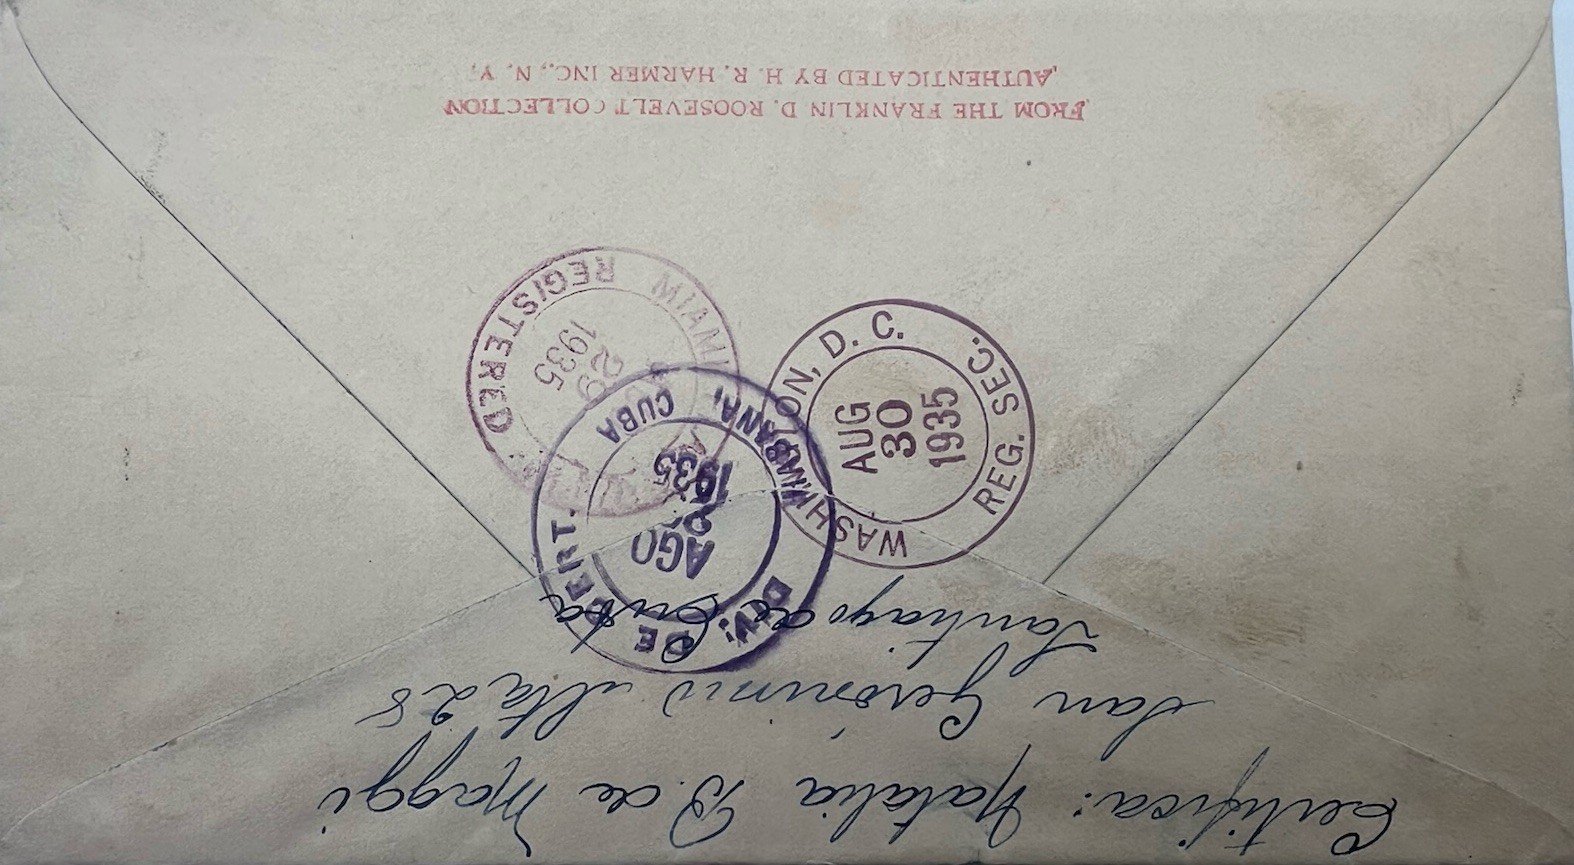 Certifica: Natalia B. de Maggi
San Gerónimo alta 28
Santiago de Cuba
DIV. DE CERT.
HABANA, CUBA
AGO
1935
WASHINGTON, D. C.
REG. SEC.
AUG
30
1935
MIAMI
REGISTERED
1935
FROM THE FRANKLIN D. ROOSEVELT COLLECTION
AUTHENTICATED BY H. R. HARMER INC., N. Y.